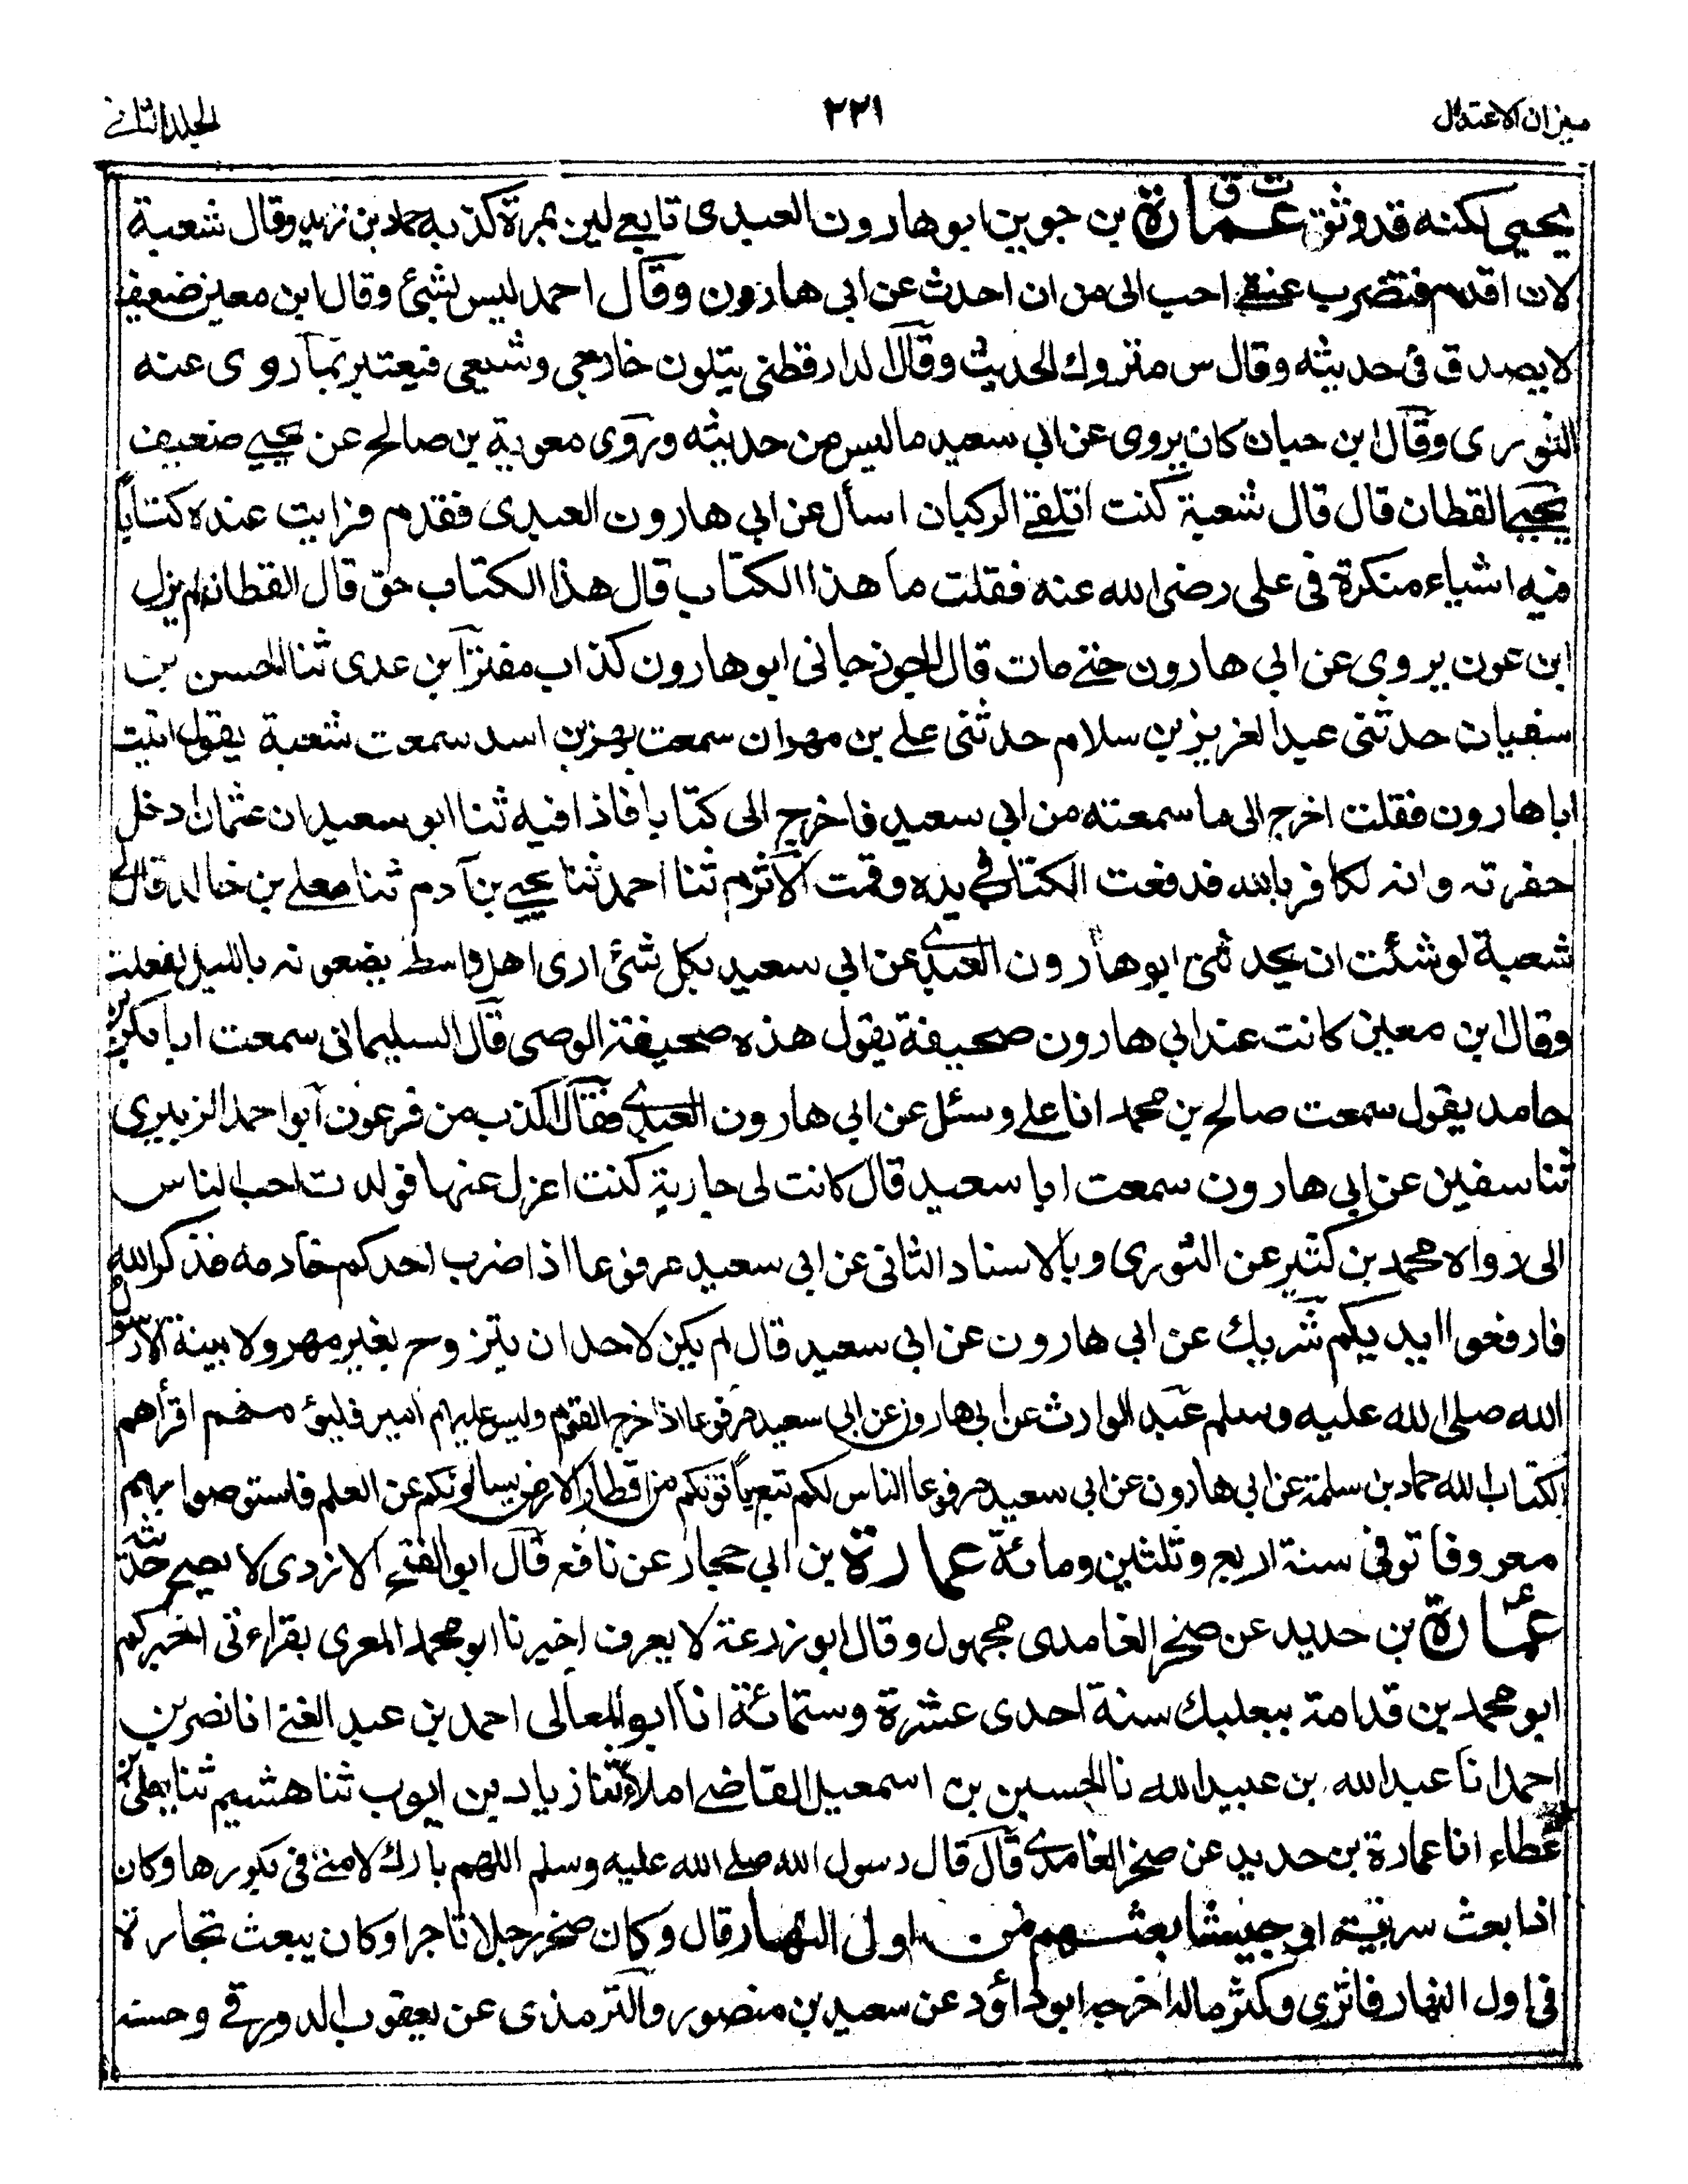 ميزان الاعتدال
٢٢١
الجلد الثانے
يحيى لكنه قد وثق ت ق عمارة بن جوين ابو هارون العبدى تابعے لين بمرة كذبه حماد بن زيد وقال شعبة
لان اقدم فتضرب عنقے احب الى من ان احدث عن ابى هارون وقال احمد ليس بشئ وقال ابن معين ضعيف
لا يصدق فى حديثه وقال س متروك الحديث وقال الدارقطنى يتلون خارجى وشيعى فيعتبر بما روى عنه
الثورى وقال ابن حبان كان يروى عن ابى سعيد ما ليس من حديثه وروى معوية بن صالح عن يحيے ضعيف
يحيے القطان قال قال شعبة كنت اتلقے الركبان اسأل عن ابى هارون العبدى فقدم فرايت عنده كتابا
فيه اشياء منكرة فى على رضى الله عنه فقلت ما هذا الكتاب قال هذا الكتاب حق قال القطان لم يزل
ابن عون يروى عن ابى هارون حتے مات قال الجوزجانى ابو هارون كذاب مفتر ابن عدى ثنا الحسن بن
سفيان حدثنى عبد العزيز بن سلام حدثنى علے بن مهران سمعت بهز بن اسد سمعت شعبة يقول اتيت
ابا هارون فقلت اخرج الى ما سمعته من ابى سعيد فاخرج الى كتابا فاذا فيه ثنا ابو سعيد ان عثمان ادخل
حفرته وانه لكافر بالله فدفعت الكتاب فے يده وقمت الاثرم ثنا احمد ثنا يحيے بن آدم ثنا معلے بن خالد قال لى
شعبة لو شئت ان يحدثنى ابو هارون العبدے عن ابى سعيد بكل شئ ارى اهل واسط يضعونه بالليل لفعلت
وقال ابن معين كانت عند ابى هارون صحيفة يقول هذه صحيفة الوصى قال السليمانى سمعت ابا بكر بن
حامد يقول سمعت صالح بن محمد ابا علے وسئل عن ابى هارون العبدے فقال اكذب من فرعون ابو احمد الزبيرى
ثنا سفين عن ابى هارون سمعت ابا سعيد قال كانت لى جارية كنت اعزل عنها فولدت احب الناس
الى رواه محمد بن كثير عن الثورى وبالاسناد الثانى عن ابى سعيد مرفوعا اذا ضرب احدكم خادمه فذكر الله
فارفعوا ايديكم شريك عن ابى هارون عن ابى سعيد قال لم يكن لاحد ان يتزوج بغير مهر ولا بينة الا رسول
الله صلى الله عليه وسلم عبد الوارث عن ابى هارون عن ابى سعيد مرفوعا اذا خرج القوم وليس عليهم امير فليؤ مهم اقرأهم
لكتاب الله حماد بن سلمة عن ابى هارون عن ابى سعيد مرفوعا الناس لكم تبع ياتونكم من اقطار الارض يسالونكم عن العلم فاستوصوا بهم
معروفا توفى سنة اربع وثلثين ومائة عمارة بن ابى حجار عن نافع قال ابو الفتح الازدى لا يصح حديثه
عمارة بن حديد عن صخر الغامدى مجهول وقال ابو زرعة لا يعرف اخبرنا ابو محمد المعرى بقراءتى اخبركم
ابو محمد بن قدامة ببعلبك سنة احدى عشرة وستمائة انا ابو المعالى احمد بن عبد الغنے انا نصر بن
احمد انا عبد الله بن عبيد الله نا الحسين بن اسمعيل القاضے املاء ثنا زياد بن ايوب ثنا هشيم ثنا يعلى بن
عطاء انا عمارة بن حديد عن صخر الغامدے قال قال رسول الله صلے الله عليه وسلم اللهم بارك لامتے فى بكورها وكان
اذا بعث سرية او جيشا بعثهم من اول النهار قال وكان صخر رجلا تاجرا وكان يبعث تجارته
فى اول النهار فاثرى وكثر ماله اخرجه ابو داؤد عن سعيد بن منصور والترمذى عن يعقوب الدورقے وحسنه